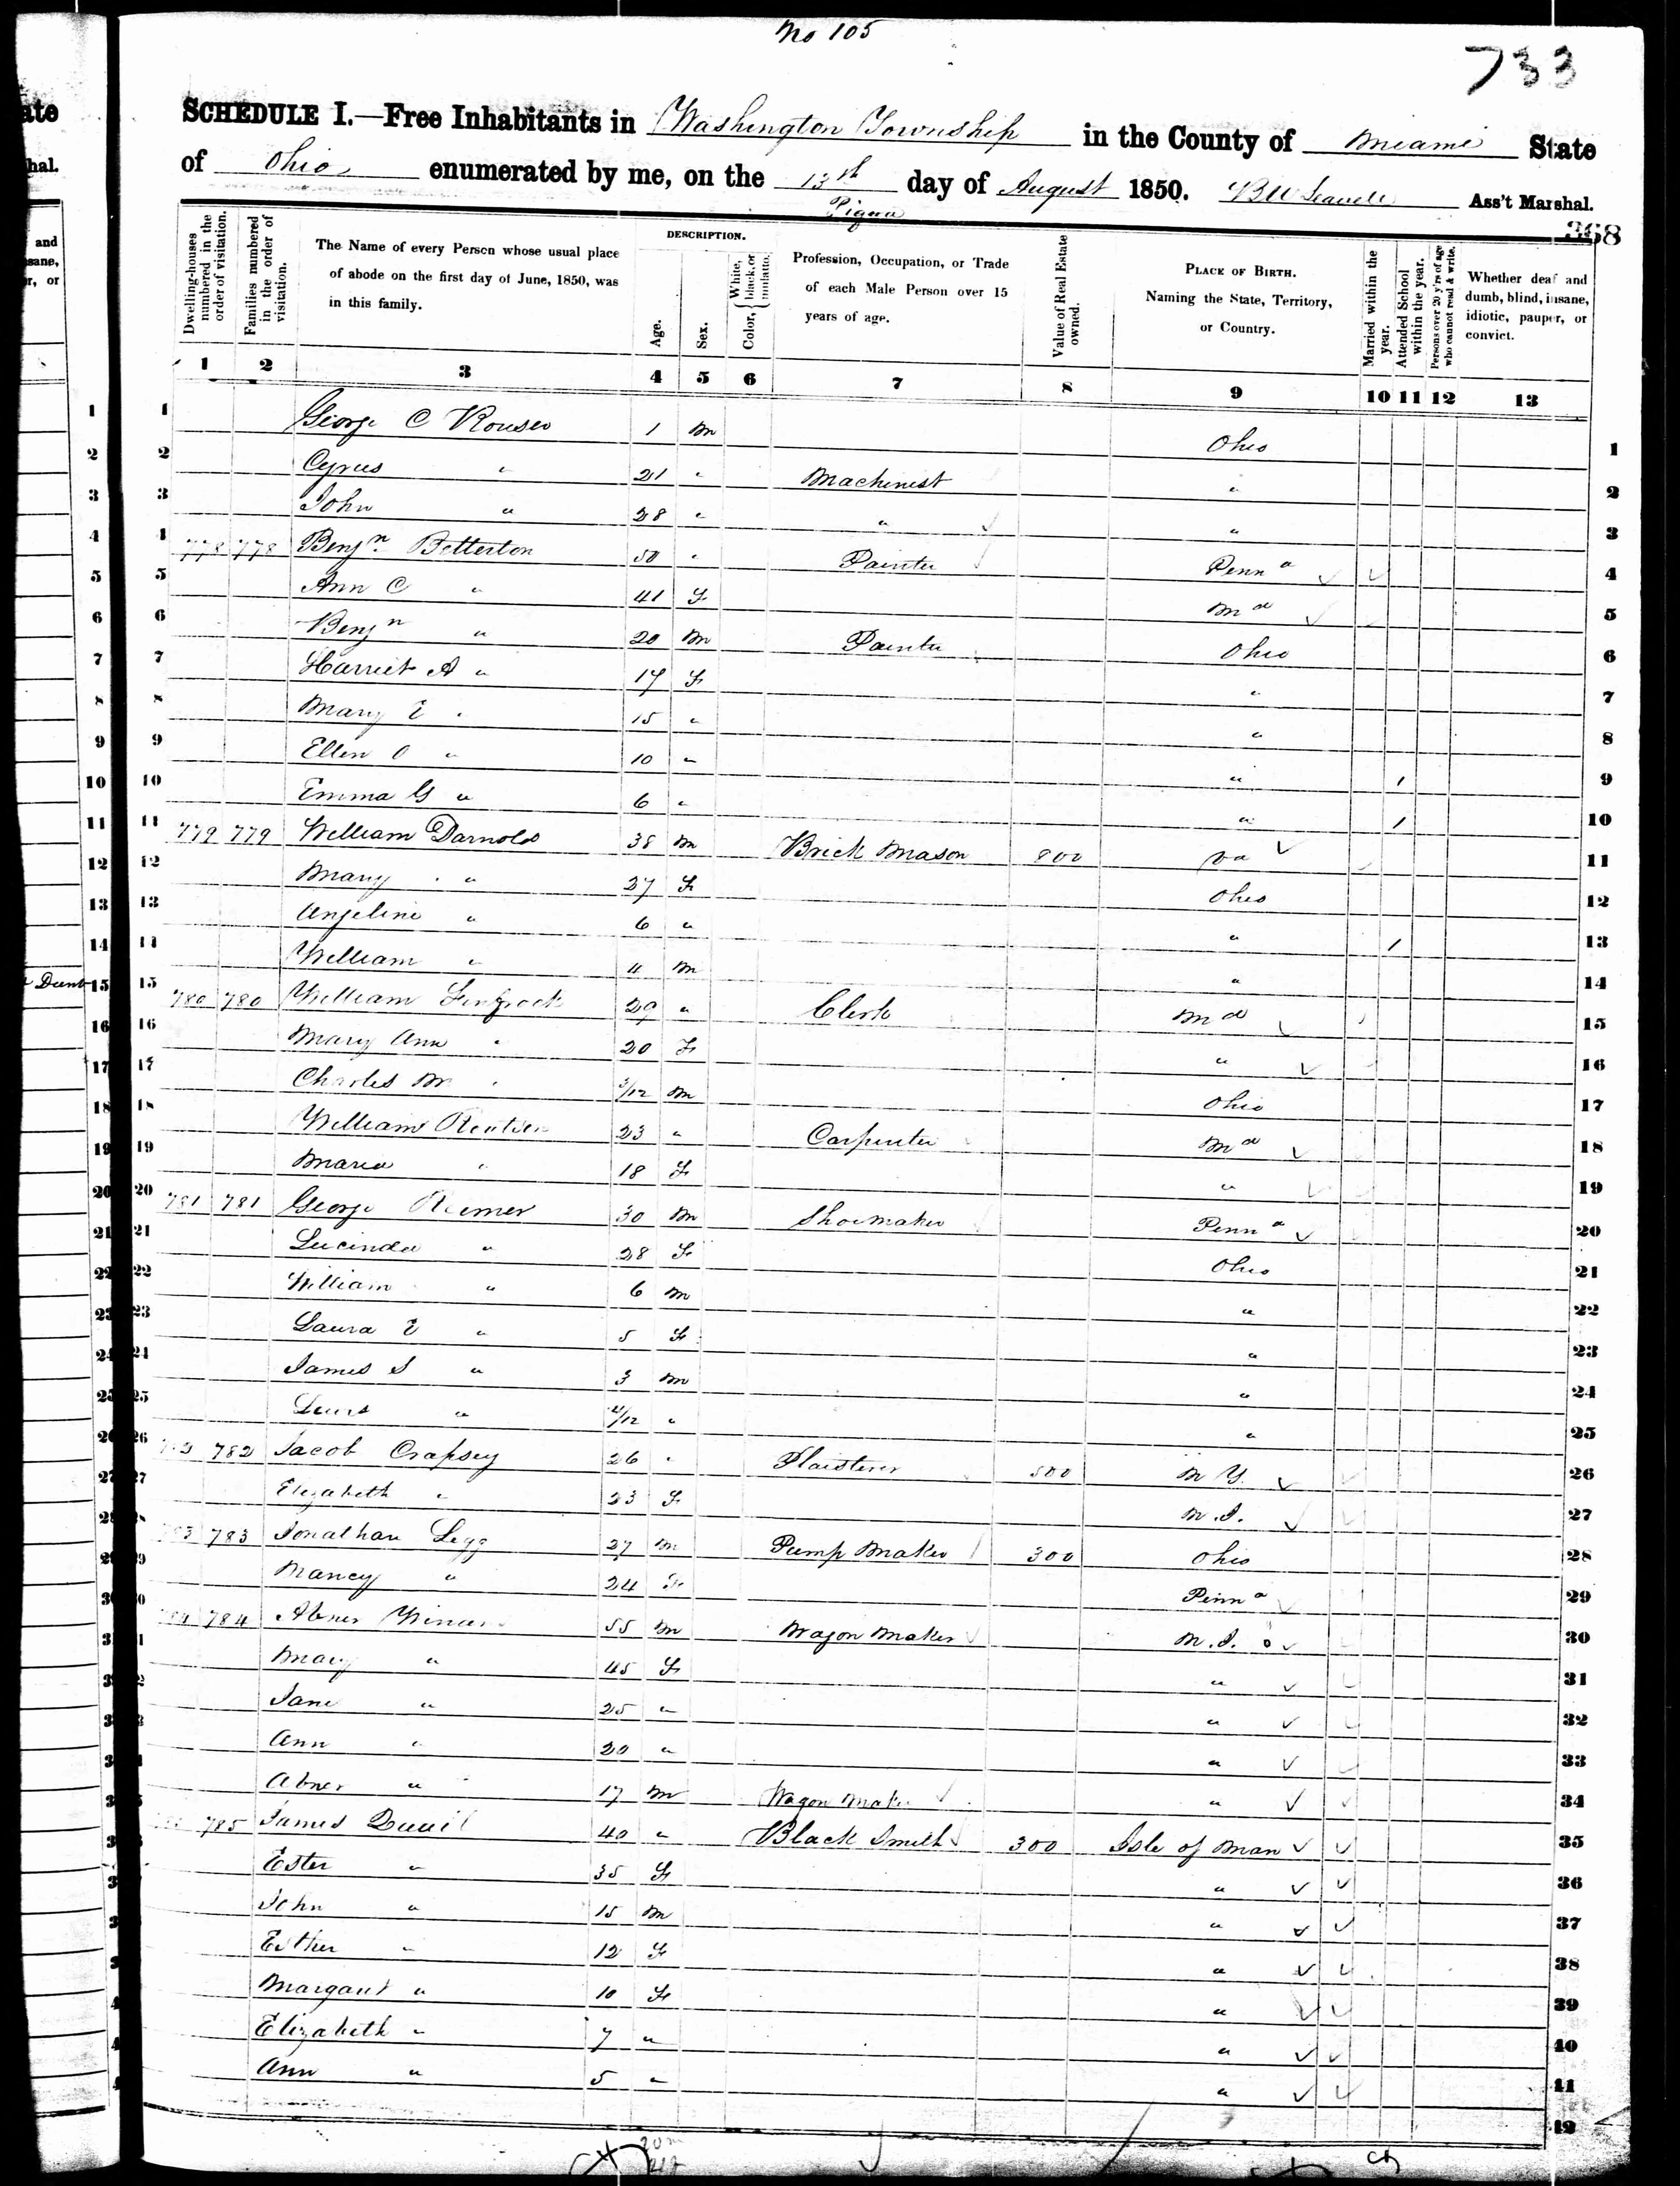 No 105
733
SCHEDULE I.—Free Inhabitants in Washington Township in the County of Miami State
of Ohio enumerated by me, on the 13th day of August 1850. Ass't Marshal.
Piqua
368
Dwelling-houses numbered in the order of visitation.
Families numbered in the order of visitation.
The Name of every Person whose usual place of abode on the first day of June, 1850, was in this family.
DESCRIPTION.
Age.
Sex.
Color, { White, black, or mulatto.
Profession, Occupation, or Trade of each Male Person over 15 years of age.
Value of Real Estate owned.
PLACE OF BIRTH. Naming the State, Territory, or Country.
Married within the year.
Attended School within the year.
Persons over 20 y'rs of age who cannot read & write.
Whether deaf and dumb, blind, insane, idiotic, pauper, or convict.
1 2 3 4 5 6 7 8 9 10 11 12 13
1 George C Rouser 1 M Ohio 1
2 Cyrus " 21 " Machinist " 2
3 John " 28 " " " 3
4 778 778 Benjn Betterton 50 " Painter Penna 4
5 Ann C " 41 F Md 5
6 Benjn " 20 M Painter Ohio 6
7 Harriet A " 17 F " 7
8 Mary E " 15 " " 8
9 Ellen O " 10 " " 1 9
10 Emma G " 6 " " 1 10
11 779 779 William Darnold 38 M Brick Mason 800 Va 11
12 Mary " 27 F Ohio 12
13 Angeline " 6 " " 1 13
14 William " M " 14
15 780 780 William 29 " Clerk Md 15
16 Mary Ann " 20 F " 16
17 Charles M " M Ohio 17
18 William 23 " Carpenter Md 18
19 Maria " 18 F " 19
20 781 781 George Reemer 30 M Shoemaker Penna 20
21 Lucinda " 28 F Ohio 21
22 William " 6 M " 22
23 Laura E " 5 F " 23
24 James S " 3 M " 24
25 Lewis " " " 25
26 782 Jacob Crapsey 26 " Plaisterer 500 N Y. 26
27 Elizabeth " 23 F N.J. 27
783 Jonathan Legg 27 M Pump Maker 300 Ohio 28
Nancy " 24 F Penna 29
784 784 Abner 55 M Wagon Maker N.J. 30
Mary " 45 F " 31
Jane " 25 " " 32
Ann " 20 " " 33
Abner " 17 M Wagon Maker " 34
785 James 40 " Black Smith 300 Isle of Man 35
Ester " 35 F " 36
John " 15 M " 37
Esther " 12 F " 38
Margaret " 10 F " 39
Elizabeth " 7 " " 40
Ann " 5 " " 41
42